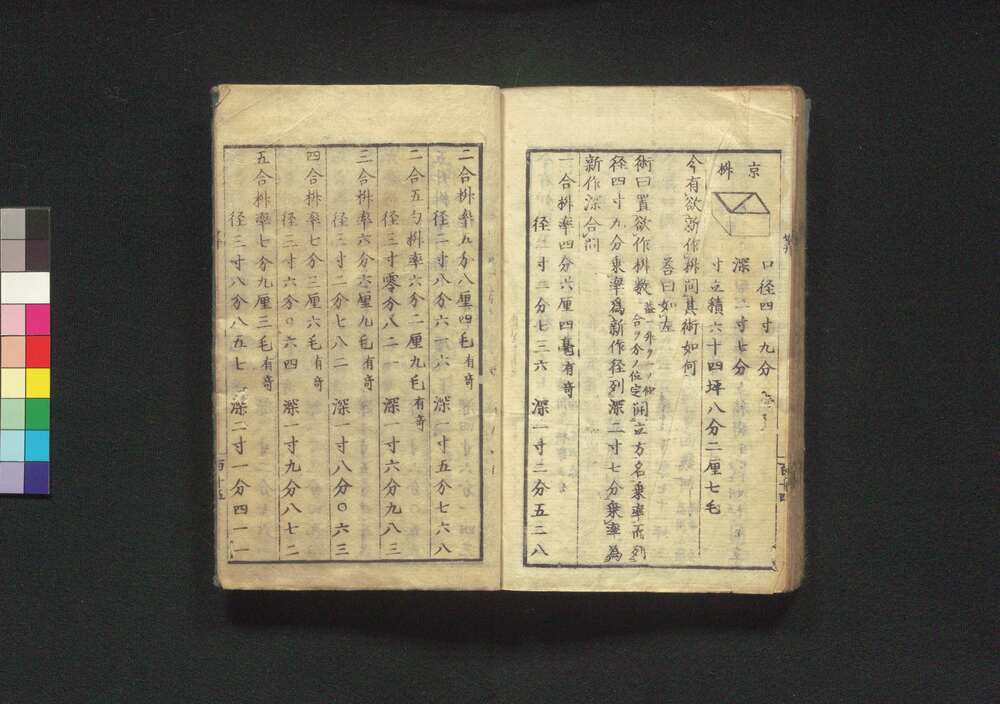 京
桝
口径四寸九分
深二寸七分
寸立積六十四坪八分二厘七毛
今有欲新作桝問其術如何
答曰如左
術曰置欲作桝数 開立方名乗率而列
径四寸九分乗率為新作径列深二寸七分乗率為
新作深合問
一合桝率四分六厘四毫有奇
径二寸二分七三六 深一寸二分五二八
二合桝率五分八厘四毛有奇
径二寸八分六六六 深一寸五分七六八
二合五勺桝率六分二厘九毛有奇
径三寸零分八二一 深一寸六分九八三
三合桝率六分六厘九毛有奇
径三寸二分七八二 深一寸八分〇六三
四合桝率七分三厘六毛有奇
径三寸六分〇六四 深一寸九分八七二
五合桝率七分九厘三毛有奇
径三寸八分八五七 深二寸一分四一一
百十五